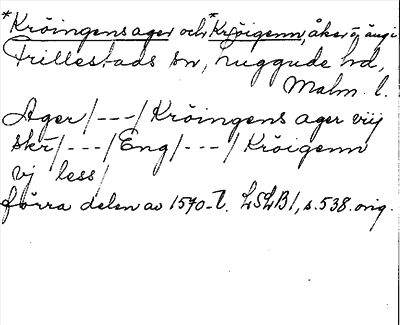 *Kröingens ager och *Kröigenn, åker o. äng i
Frillestads sn, Luggude hd,
Malm. l.
Ager/---/Kröingens ager viij
skr/---/Eng/---/Kröigenn
vj less/
förra delen av 1570-t. LSLB1, s. 538. orig.